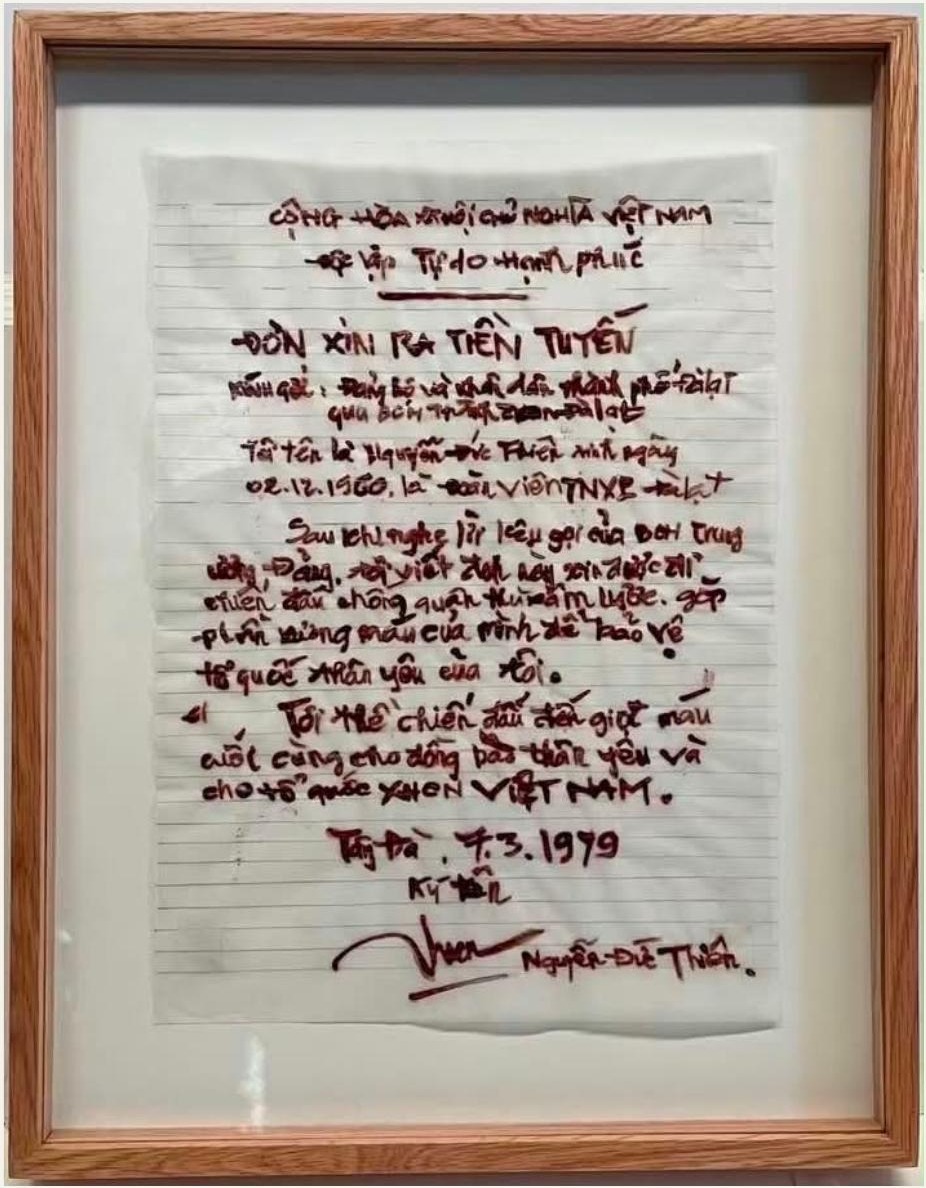 CỘNG HÒA XÃ HỘI CHỦ NGHĨA VIỆT NAM
Độc lập Tự do Hạnh phúc
ĐƠN XIN RA TIỀN TUYẾN
Kính gởi: Đảng bộ và nhân dân thành phố Đàlạt
qua BCH Đàlạt
Tôi tên là Nguyễn Đức Thiên sinh ngày
02.12.1960, là đoàn viên TNXP Đàlạt
Sau khi nghe lời kêu gọi của BCH Trung
ương Đảng, tôi viết đơn này xin được đi
chiến đấu chống quân thù xâm lược. góp
phần xương máu của mình để bảo vệ
tổ quốc thân yêu của tôi.
Tôi thề chiến đấu đến giọt máu
cuối cùng cho đồng bào thân yêu và
cho tổ quốc XHCN VIỆT NAM.
7.3.1979
Ký tên
Nguyễn Đức Thiên.